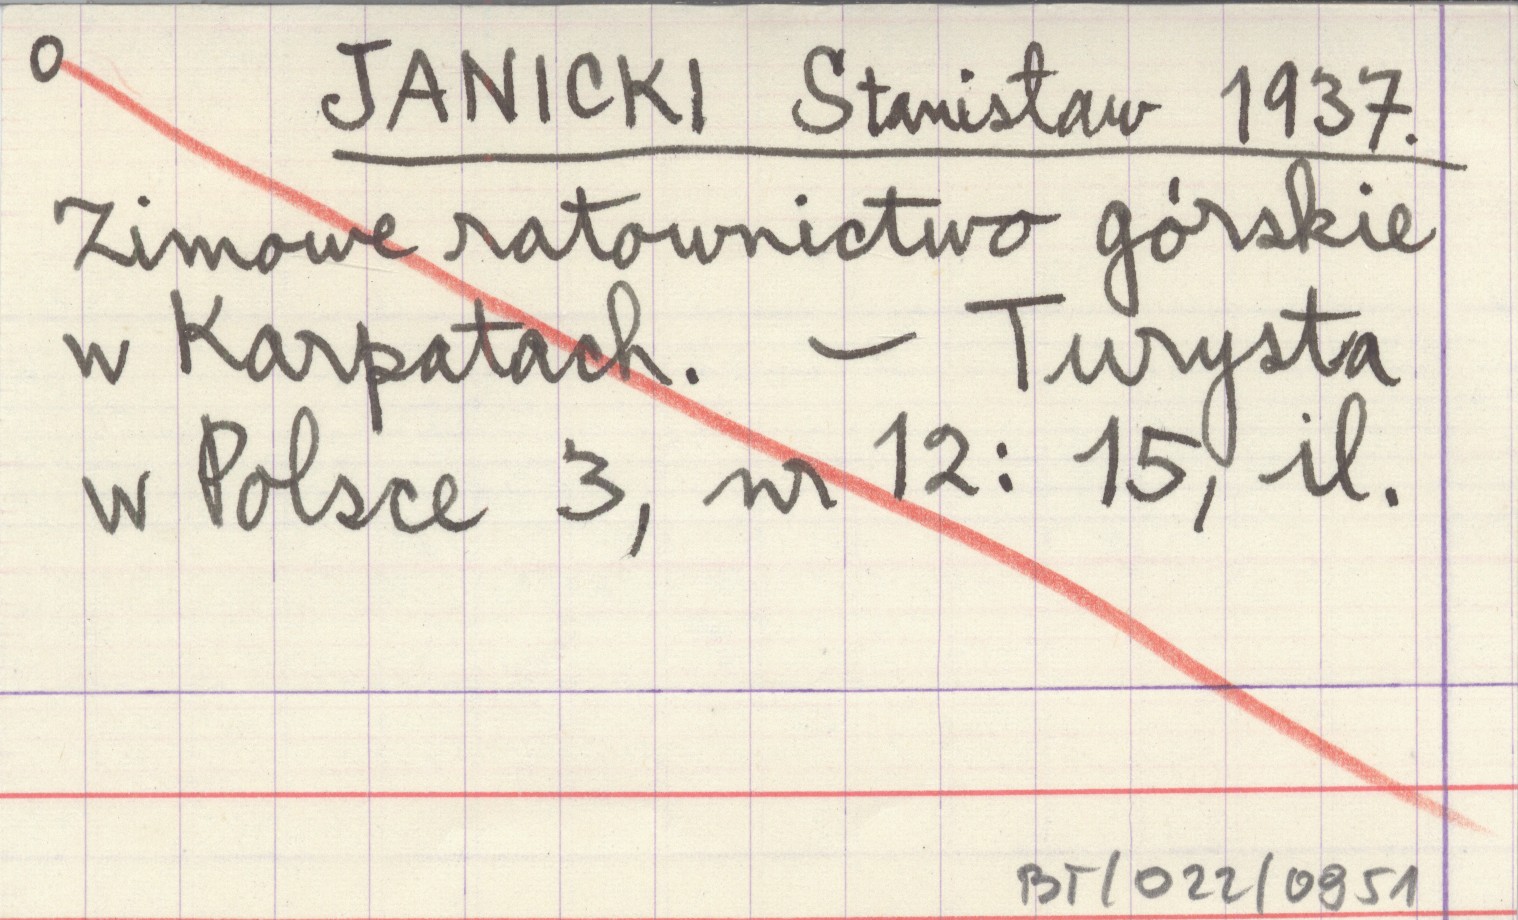 O JANICKI Stanisław 1937.
Zimowe ratownictwo górskie
w Karpatach. – Turysta
w Polsce 3, nr 12: 15, il.
BT/022/0951